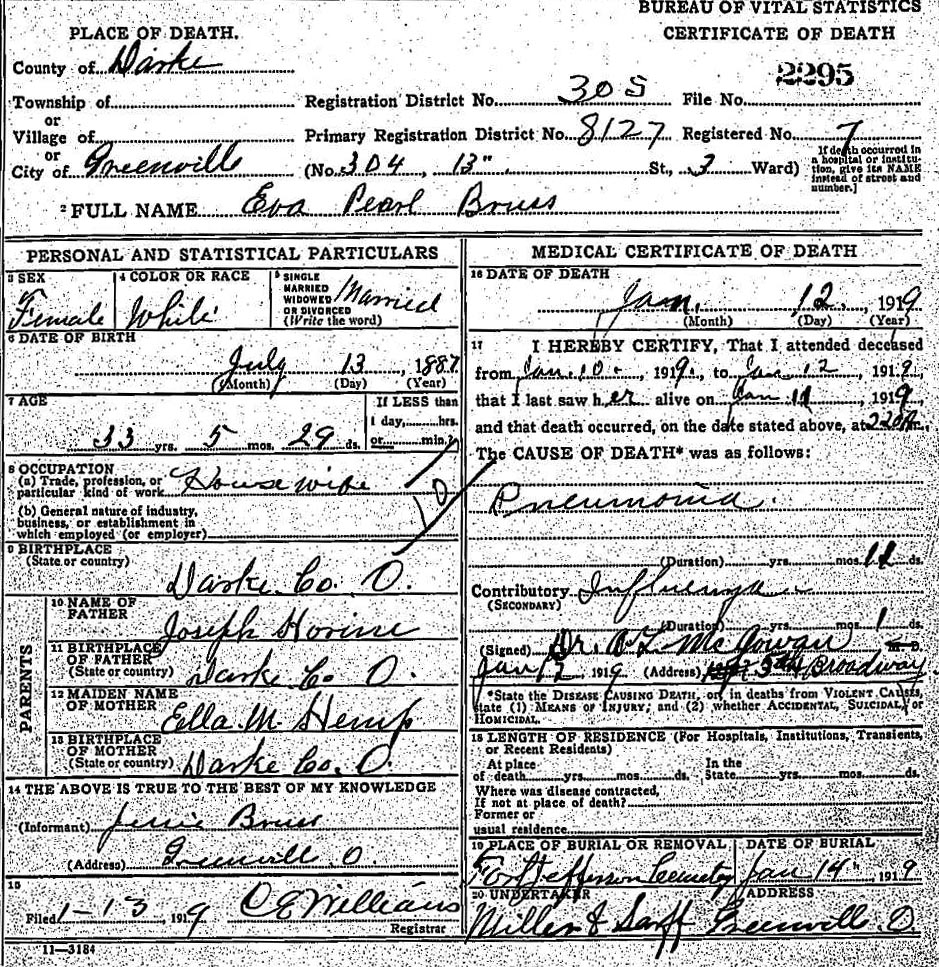 BUREAU OF VITAL STATISTICS
PLACE OF DEATH. CERTIFICATE OF DEATH
County of Darke 2295
Township of Registration District No. 305 File No.
or
Village of Primary Registration District No. 8127 Registered No. 7
or
City of Greenville (No. 304, 13" St., 3 Ward)
If death occurred in
a hospital or institu-
tion, give its NAME
instead of street and
number.]
2 FULL NAME Eva Pearl Bruss
PERSONAL AND STATISTICAL PARTICULARS
3 SEX
Female
4 COLOR OR RACE
White
5 SINGLE
MARRIED
WIDOWED
OR DIVORCED
(Write the word)
Married
6 DATE OF BIRTH
July 13, 1887
(Month) (Day) (Year)
7 AGE
33 yrs. 5 mos. 29 ds.
If LESS than
1 day, hrs.
or min.?
8 OCCUPATION
(a) Trade, profession, or
particular kind of work Housewife
(b) General nature of industry,
business, or establishment in
which employed (or employer)
10
9 BIRTHPLACE
(State or country)
Darke Co. O.
PARENTS
10 NAME OF
FATHER
Joseph Horine
11 BIRTHPLACE
OF FATHER
(State or country) Darke Co. O.
12 MAIDEN NAME
OF MOTHER
Ella M Hemp
13 BIRTHPLACE
OF MOTHER
(State or country) Darke Co. O.
14 THE ABOVE IS TRUE TO THE BEST OF MY KNOWLEDGE
(Informant) Bruss
(Address) Greenvill O.
15
Filed 1-13, 1919 C E Williams
Registrar
11—3184
MEDICAL CERTIFICATE OF DEATH
16 DATE OF DEATH
Jan, 12, 1919
(Month) (Day) (Year)
17 I HEREBY CERTIFY, That I attended deceased
from Jan. 10, 1919, to Jan 12, 1919
that I last saw her alive on Jan 11, 1919,
and that death occurred, on the date stated above, at m.
The CAUSE OF DEATH* was as follows:
Pneumonia.
(Duration) yrs. mos. ds.
Contributory Influenza
(SECONDARY)
(Duration) yrs. mos. 1 ds.
(Signed) Dr. McGowan M. D.
Jan 12, 1919 (Address) Broadway
*State the DISEASE CAUSING DEATH, or, in deaths from VIOLENT CAUSES,
state (1) MEANS OF INJURY; and (2) whether ACCIDENTAL, SUICIDAL, or
HOMICIDAL.
18 LENGTH OF RESIDENCE (For Hospitals, Institutions, Transients,
or Recent Residents)
At place In the
of death yrs. mos. ds. State yrs. mos. ds.
Where was disease contracted,
If not at place of death?
Former or
usual residence
19 PLACE OF BURIAL OR REMOVAL
Fort Jefferson Cemetery
DATE OF BURIAL
Jan 14", 1919
20 UNDERTAKER ADDRESS
Miller & Sarff Greenville O.